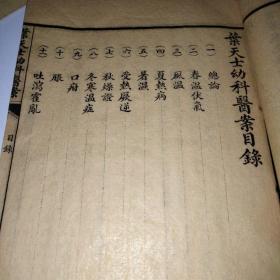 葉天士幼科醫案目錄
(一) 總論
(二) 春溫伏氣
(三) 風溫
(四) 夏熱病
(五) 暑濕
(六) 受熱厥逆
(七) 秋燥證
(八) 冬寒溫症
(九) 口疳
(十) 脹
(十一) 吐瀉霍亂
葉天士幼科醫案
目錄